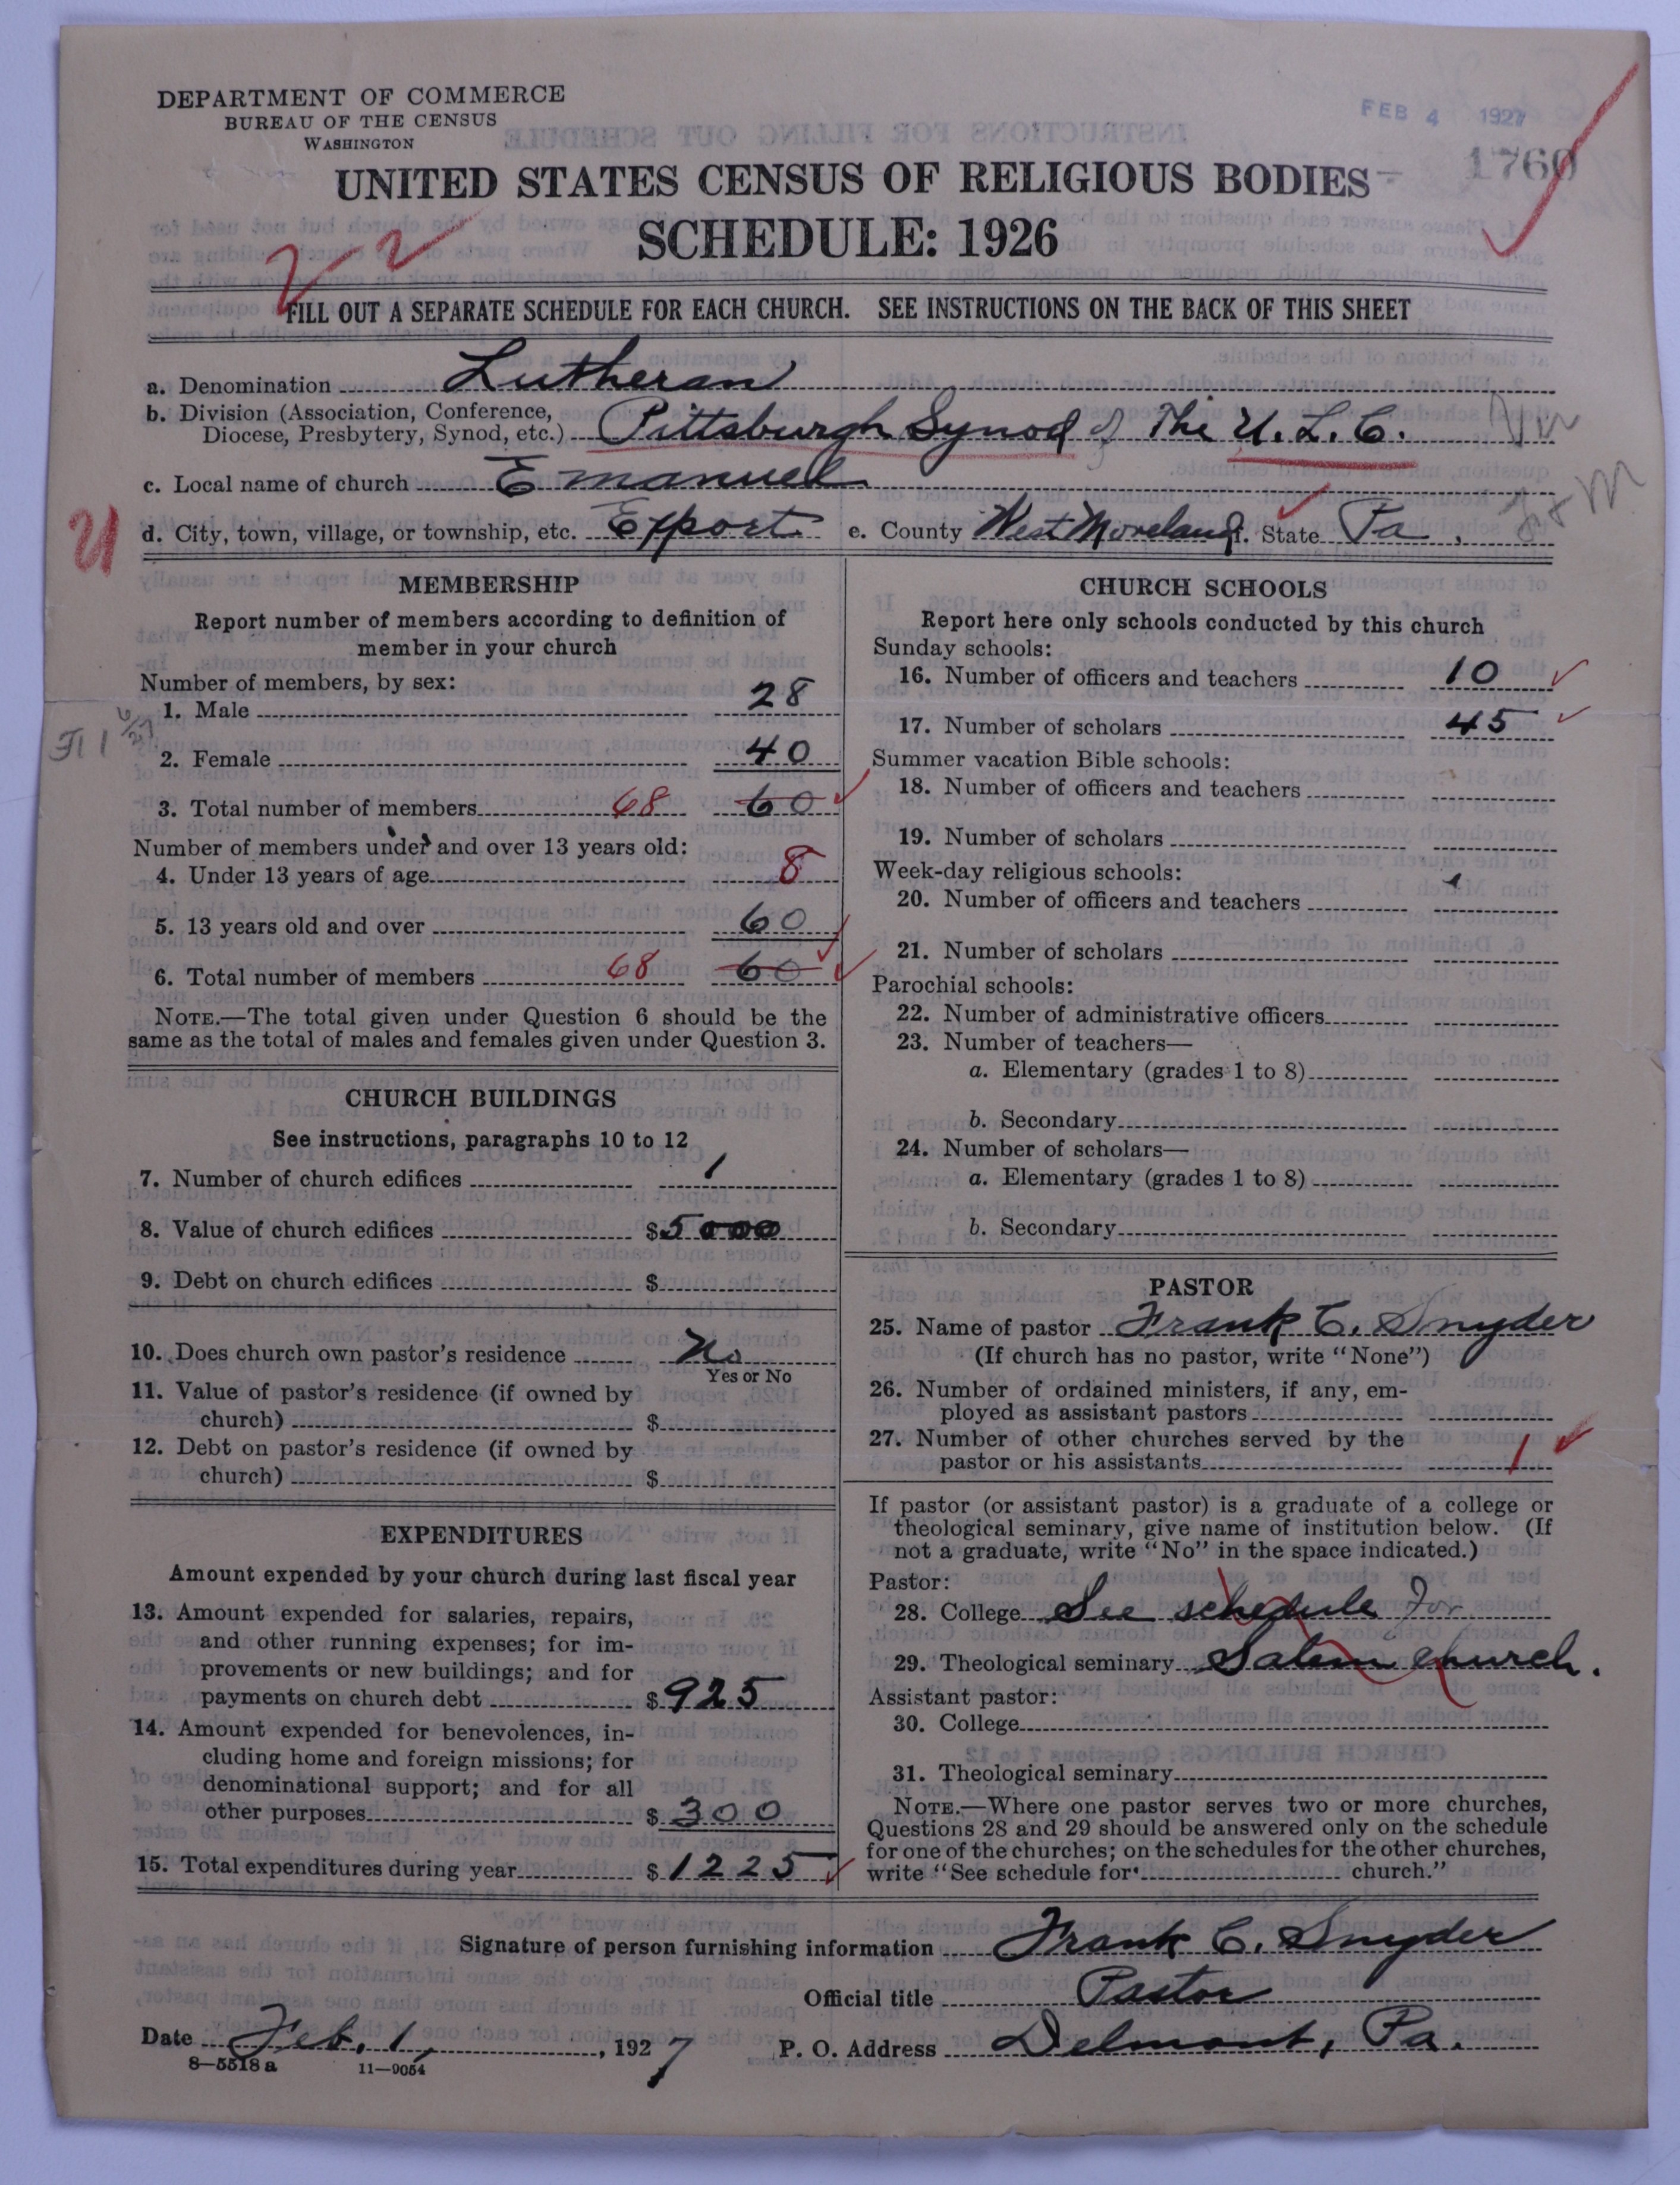 DEPARTMENT OF COMMERCE
BUREAU OF THE CENSUS
WASHINGTON
FEB 4 1927
1760
UNITED STATES CENSUS OF RELIGIOUS BODIES
SCHEDULE: 1926
22
FILL OUT A SEPARATE SCHEDULE FOR EACH CHURCH. SEE INSTRUCTIONS ON THE BACK OF THIS SHEET
a. Denomination Lutheran
b. Division (Association, Conference,
Diocese, Presbytery, Synod, etc.) Pittsburgh Synod of The U. L. C.
c. Local name of church Emanuel
d. City, town, village, or township, etc. Export e. County West Moreland. State Pa.
U
MEMBERSHIP
Report number of members according to definition of
member in your church
Number of members, by sex:
1. Male 28
2. Female 40
3. Total number of members 68 60
Number of members under and over 13 years old:
4. Under 13 years of age 8
5. 13 years old and over 60
6. Total number of members 68 60
NOTE.—The total given under Question 6 should be the
same as the total of males and females given under Question 3.
CHURCH BUILDINGS
See instructions, paragraphs 10 to 12
7. Number of church edifices 1
8. Value of church edifices $5000
9. Debt on church edifices $
10. Does church own pastor's residence No
Yes or No
11. Value of pastor's residence (if owned by
church) $
12. Debt on pastor's residence (if owned by
church) $
EXPENDITURES
Amount expended by your church during last fiscal year
13. Amount expended for salaries, repairs,
and other running expenses; for im-
provements or new buildings; and for
payments on church debt $925
14. Amount expended for benevolences, in-
cluding home and foreign missions; for
denominational support; and for all
other purposes $300
15. Total expenditures during year $1225
CHURCH SCHOOLS
Report here only schools conducted by this church
Sunday schools:
16. Number of officers and teachers 10
17. Number of scholars 45
Summer vacation Bible schools:
18. Number of officers and teachers
19. Number of scholars
Week-day religious schools:
20. Number of officers and teachers
21. Number of scholars
Parochial schools:
22. Number of administrative officers
23. Number of teachers—
a. Elementary (grades 1 to 8)
b. Secondary
24. Number of scholars—
a. Elementary (grades 1 to 8)
b. Secondary
PASTOR
25. Name of pastor Frank C. Snyder
(If church has no pastor, write "None")
26. Number of ordained ministers, if any, em-
ployed as assistant pastors
27. Number of other churches served by the
pastor or his assistants 1
If pastor (or assistant pastor) is a graduate of a college or
theological seminary, give name of institution below. (If
not a graduate, write "No" in the space indicated.)
Pastor:
28. College See schedule for
29. Theological seminary Salem church.
Assistant pastor:
30. College
31. Theological seminary
NOTE.—Where one pastor serves two or more churches,
Questions 28 and 29 should be answered only on the schedule
for one of the churches; on the schedules for the other churches,
write "See schedule for church."
Signature of person furnishing information Frank C. Snyder
Official title Pastor
Date Feb. 1, 1927 P. O. Address Delmont, Pa.
8—5518a 11—9054